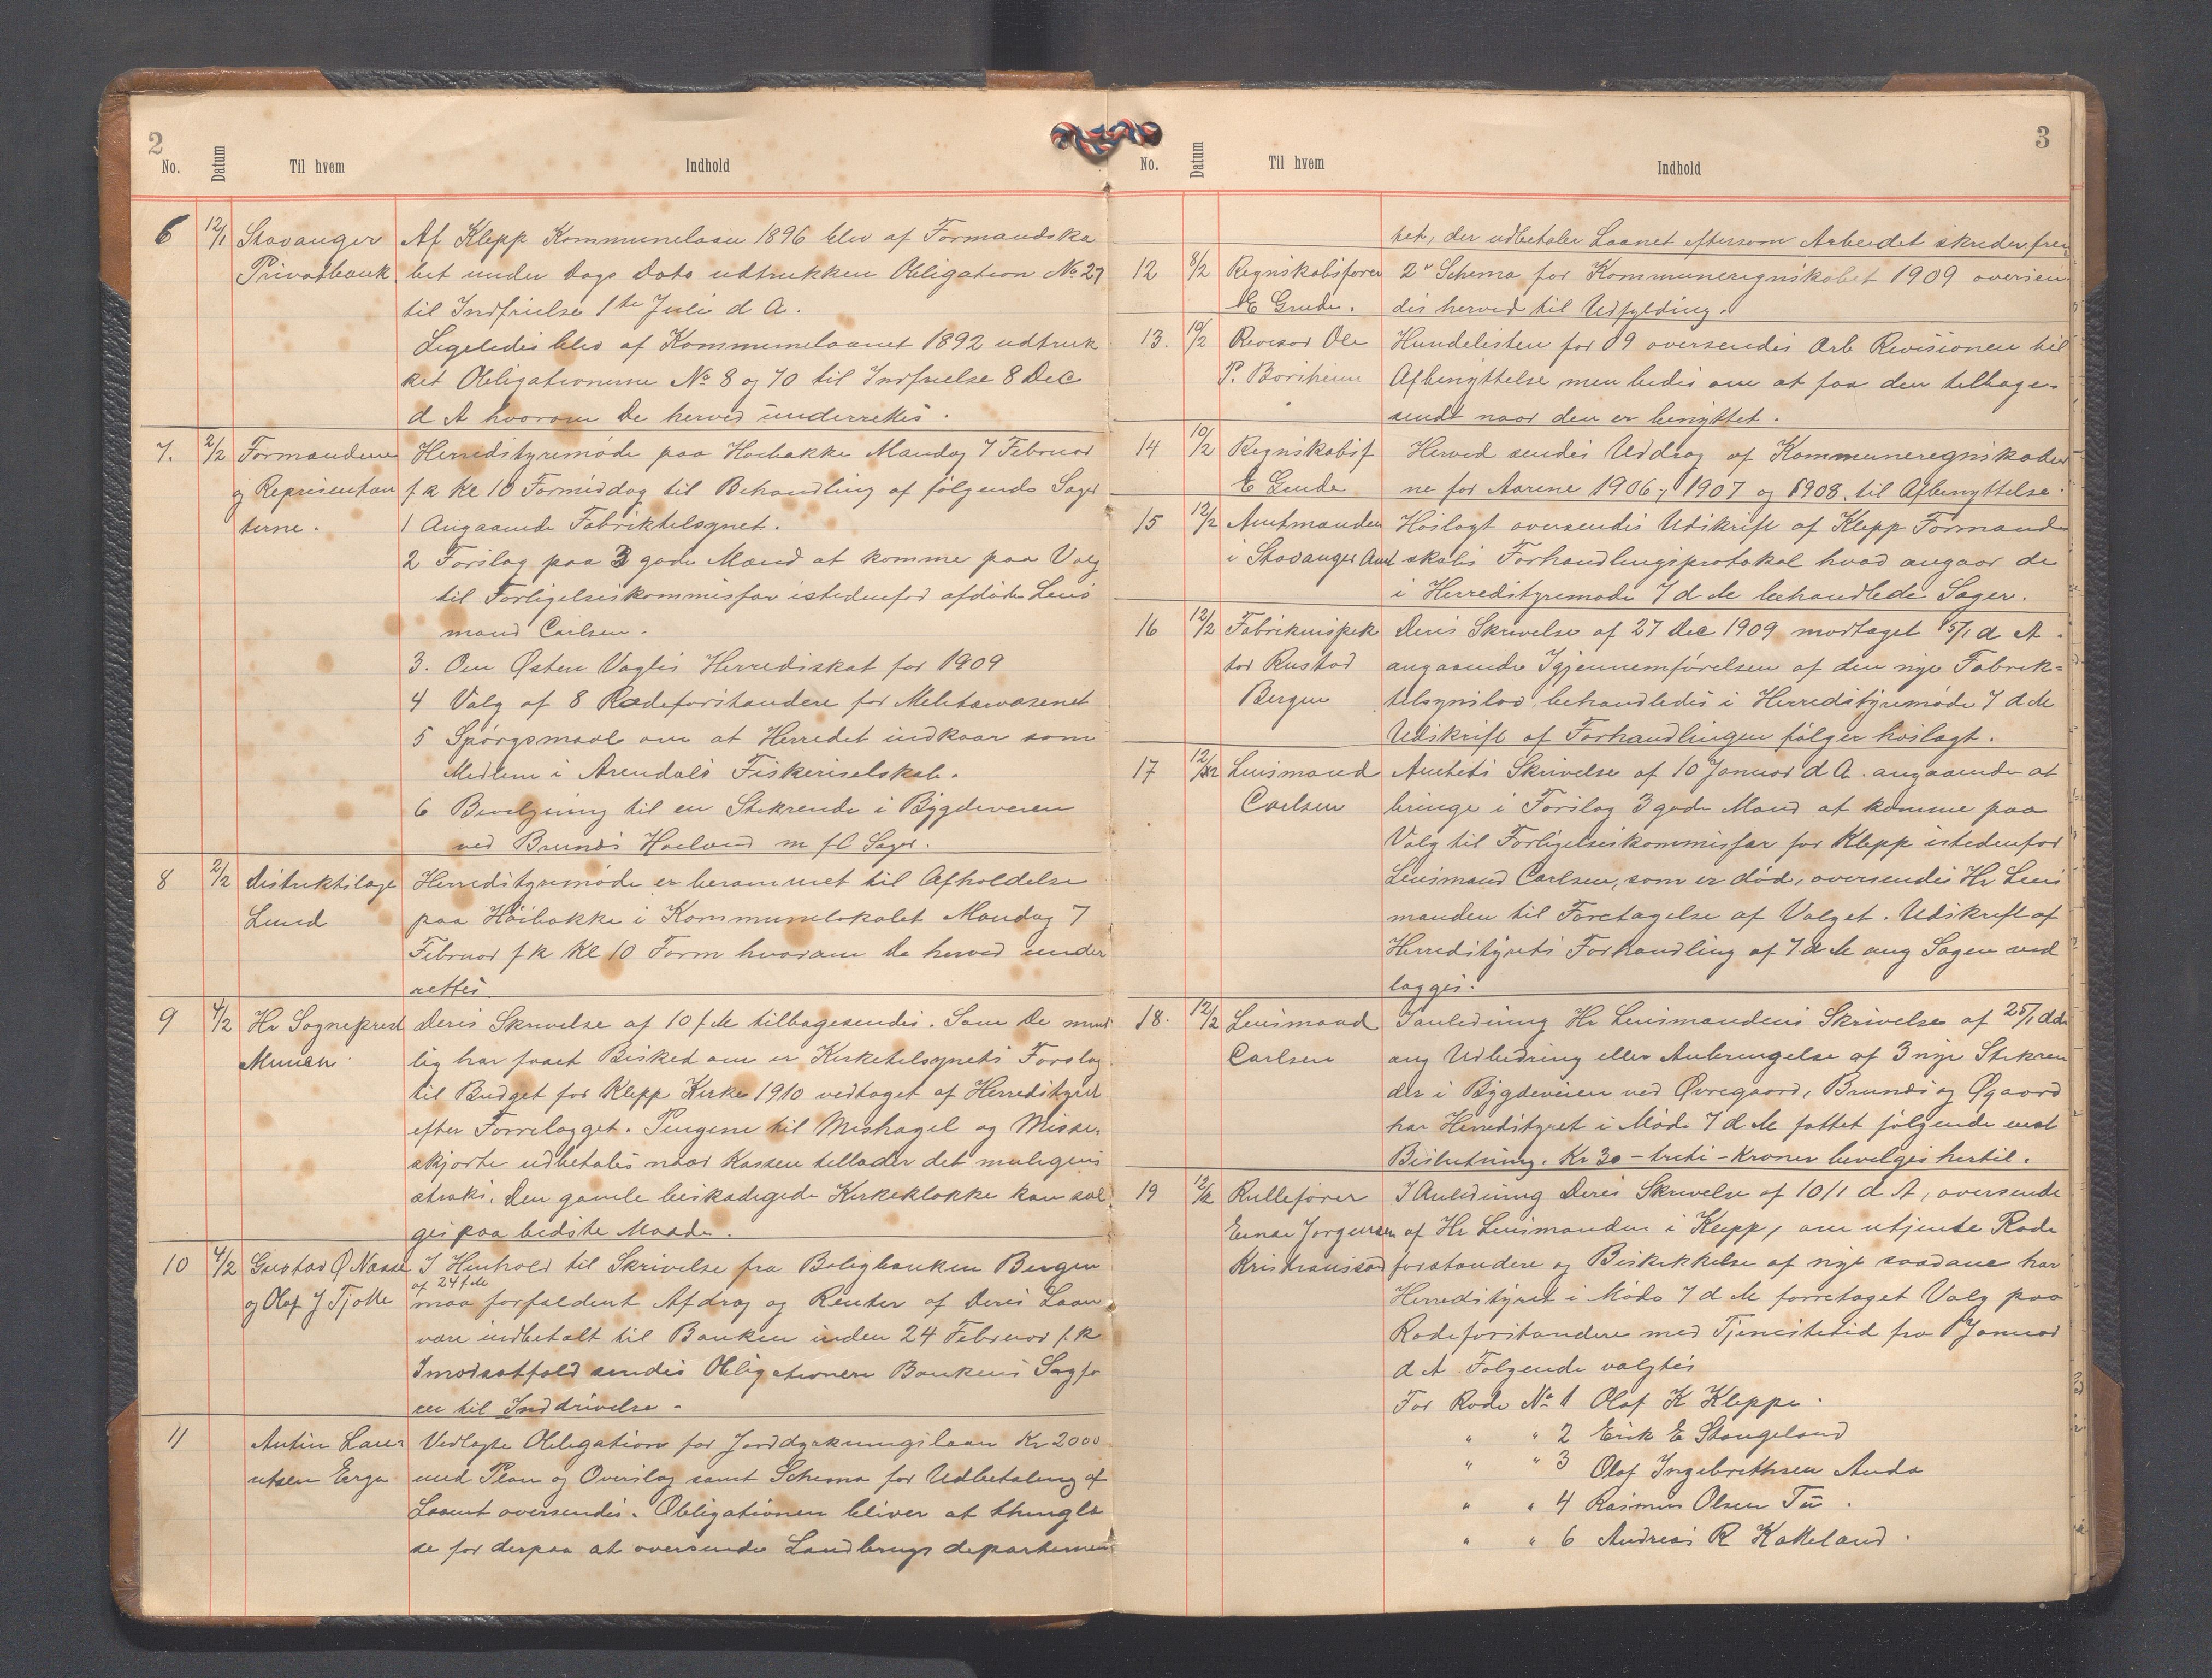 2
No. Datum Til hvem Indhold
6 12/1 Stavanger Af Klepp Kommunelaan 1896 blev af Formandska
Privatbank. bet under Dags Dato udtrukken Obligation No 27
til Indfrielse 1ste Juli d A.
Ligeledes blev af Kommunelaanet 1892 udtruk
ket Obligationerne No 8 og 70 til Indfrielse 8 Dec
d A hvorom De herved underrettes.
7. 2/2 Formændene Herredstyremøde paa Høibakke Mandag 7 Februar
og Repræsentan f k Kl 10 Formiddag til Behandling af følgende Sager
terne. 1 Angaaende Fabriktilsynet.
2 Forslag paa 3 gode Mænd at komme paa Valg
til Forligelseskommissær istedenfor afdøde Lens
mand Carlsen.
3. Om Østen Vagles Herredskat for 1909
4 Valg af 8 Rodeforstandere for Militærvæsenet
5 Spørgsmaal om at Herredet indkaar som
Medlem i Arendals Fiskeriselskab.
6 Bevilgning til en Stikrende i Bygdeveien
ved Brunes Haaland m fl Sager.
8 2/2 Distriktslæge Herredstyremøde er berammet til Afholdelse
Lund paa Høibakke i Kommunelokalet Mandag 7
Februar f k Kl 10 Form hvorom De herved under
rettes.
9 4/2 Hr Sogneprest Deres Skrivelse af 10 f M tilbagesendes. Som De mundt
Munch. lig har faaet Besked om er Kirketilsynets Forslag
til Budget for Klepp Kirke 1910 vedtaget af Herredstyret
efter Forrelægget. Pengene til Meshagel og Messe-
skjorte udbetales naar Kassen tillader det muligens
straks. Den gamle beskadigede Kirkeklokke kan sæl
ges paa bedste Maade.
10 4/2 Gustav Ø Næsse I Henhold til Skrivelse fra Boligbanken Bergen
af 24 f M
og Olaf J Tjøtte maa forfaldent Afdrag og Renter af Deres Laan
være indbetalt til Banken inden 24 Februar f. k
Imodsatfald sendes Obligationen Bankens Sagfø
rer til Inddrivelse.
11 Antin Laur Vedlagte Obligation for Jorddyrkningslaan Kr 2000
itsen Erga med Plan og Overslag samt Schema for Udbetaling af
Laanet oversendes. Obligationen bliver at thinglæ
se for derpaa at oversende Landbrugsdepartemen
3
No. Datum Til hvem Indhold
tet, der udbetaler Laanet eftersom Arbeidet skrider frem
12 8/2 Regnskabsfører 2de Schema for Kommuneregnskabet 1909 oversen
E Grude. des herved til Udfylding.
13. 10/2 Revisor Ole Hundelisten for 09 oversendes Ærb Revisionen til
P. Borsheim Afbenyttelse men bedes om at faa den tilbage-
sendt naar den er benyttet.
14 10/2 Regnskabsf Herved sendes Uddrag af Kommuneregnskaber
E Grude ne for Aarene 1906, 1907 og 1908. til Afbenyttelse.
15 12/2 Amtmanden Hoslagt oversendes Udskrift af Klepp Formand
i Stavanger Amt skabs Forhandlingsprotokol hvad angaar de
i Herredstyremøde 7 d M behandlede Sager.
16 12/2 Fabrikinspek Deres Skrivelse af 27 Dec 1909 modtaget 15/1 d A.
tør Rustad angaaende Igjennemførelsen af den nye Fabrik=
Bergen tilsynslov behandledes i Herredstyremøde 7 d M
Udskrift af Forhandlingen følger hoslagt.
17 12/2 Lensmand Amtets Skrivelse af 10 Januar d A. angaaende at
Carlsen bringe i Forslag 3 gode Mænd at komme paa
Valg til Forligelseskommissær for Klepp istedenfor
Lensmand Carlsen, som er død, oversendes Hr Lens
manden til Foretagelse af Valget. Udskrift af
Herredstyrets Forhandling af 7 d M ang Sagen ved
lægges.
18. 12/2 Lensmand I anledning Hr Lensmandens Skrivelse af 25/1 d A
Carlsen ang Udbedring eller Anbringelse af 3 nye Stikren
der i Bygdeveien ved Øvregaard, Brunes og Øgaard
har Herredstyret i Møde 7 d M fattet følgende enst
Beslutning. Kr 30 - treti - Kroner bevilges hertil.
19 12/2 Rullefører I Anledning Deres Skrivelse af 10/1 d A, oversendt
Einar Jørgensen af Hr Lensmanden i Klepp, om utjente Rode
Kristianssand forstandere og Beskikkelse af nye saadane har
Herredstyret i Møde 7 d M forretaget Valg paa
Rodeforstandere med Tjenestetid fra 1 Januar
d A Følgende valgtes
For Rode No 1 Olaf K Kleppe.
" " 2 Erik E Stangeland
" " 3 Olaf Ingebrethsen Anda
" " 4 Rasmus Olsen Tu.
" " 6 Andreas R Kalleland.